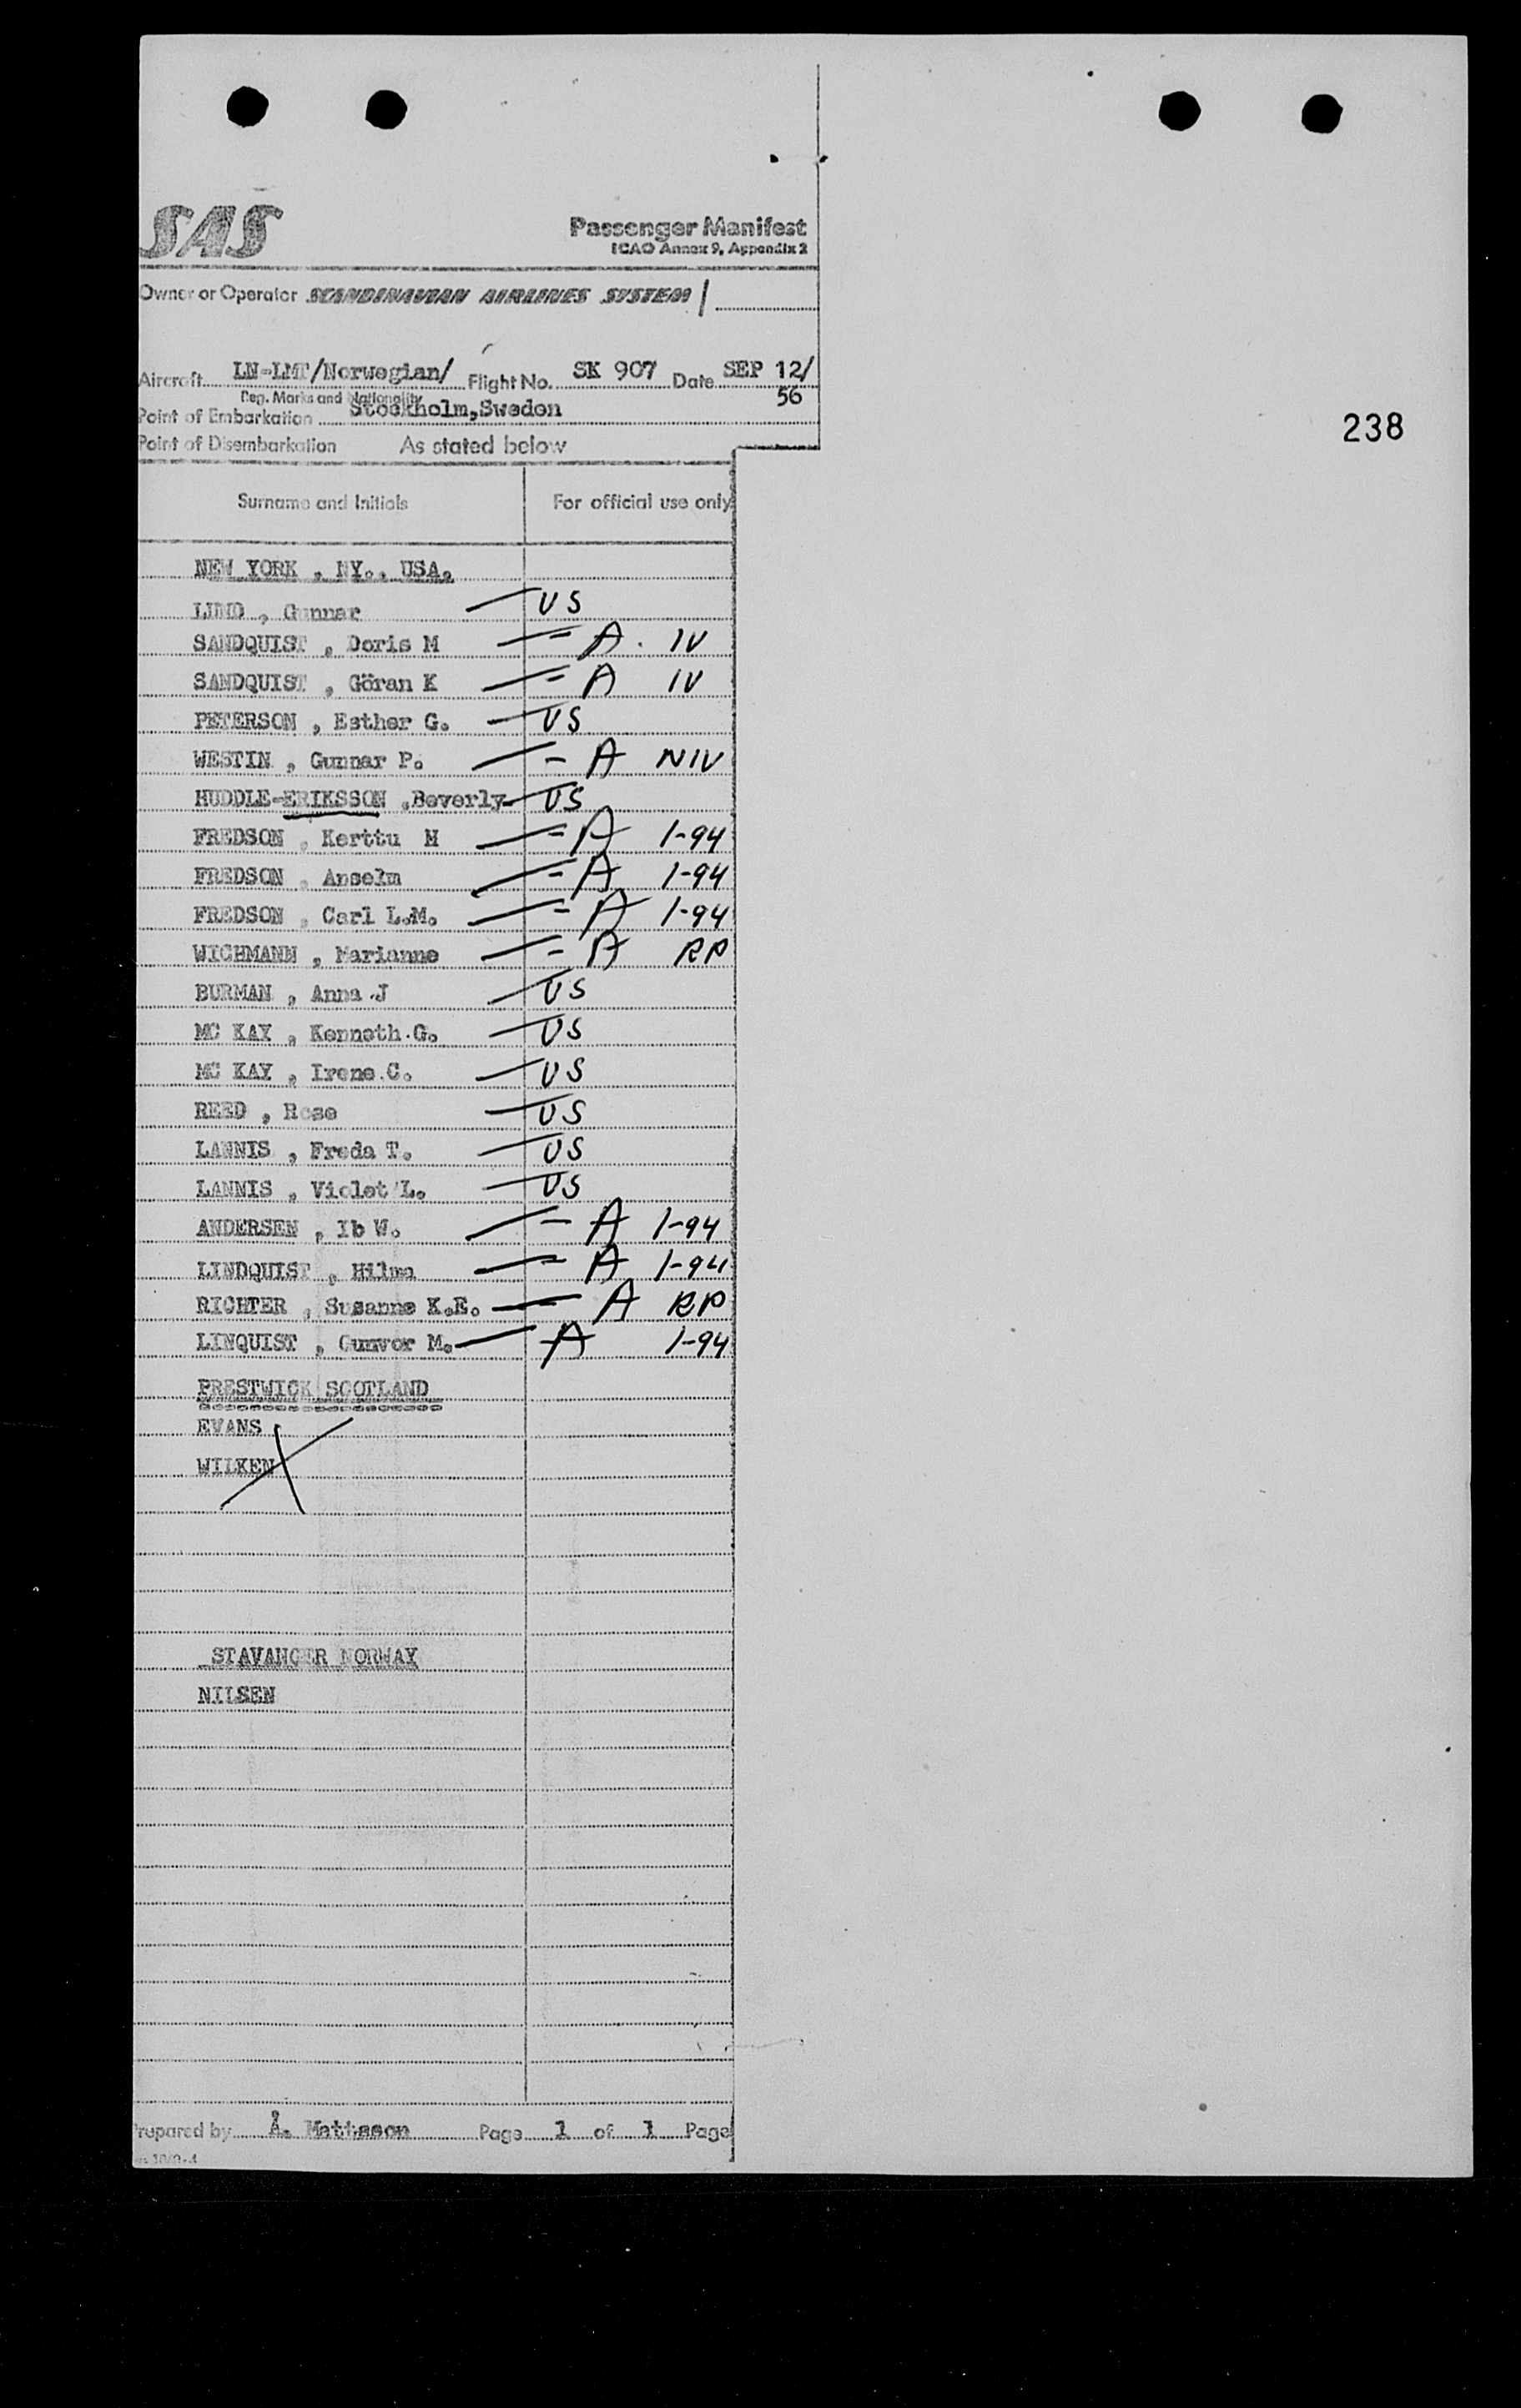 SAS
Passenger Manifest
ICAO Annex 9, Appendix 2
Owner or Operator SCANDINAVIAN AIRLINES SYSTEM /
Aircraft LN-LMT/Norwegian/ Flight No. SK 907 Date SEP 12/
Reg. Marks and Nationality 56
Point of Embarkation Stockholm,Sweden
238
Point of Disembarkation As stated below
Surname and Initials For official use only
NEW YORK , NY., USA.
LIND , Gunnar US
SANDQUIST , Doris M - A. IV
SANDQUIST , Göran K - A IV
PETERSON , Esther G. US
WESTIN , Gunnar P. - A NIV
HUDDLE-ERIKSSON ,Beverly US
FREDSON , Kerttu M - A 1-94
FREDSON , Anselm - A 1-94
FREDSON , Carl L.M. - A 1-94
WICHMANN , Marianne - A RP
BURMAN , Anna J US
MC KAY , Kenneth G. US
MC KAY , Irene C. US
REED , Rose US
LANNIS , Freda T. US
LANNIS , Violet L. US
ANDERSEN , Ib W. - A 1-94
LINDQUIST , Hilma - A 1-94
RICHTER , Susanne K.E. - A RP
LINQUIST , Gunvor M. A 1-94
PRESTWICK SCOTLAND
EVANS
WILKEN
STAVANGER NORWAY
NILSEN
Prepared by Å. Mattsson Page 1 of 1 Page